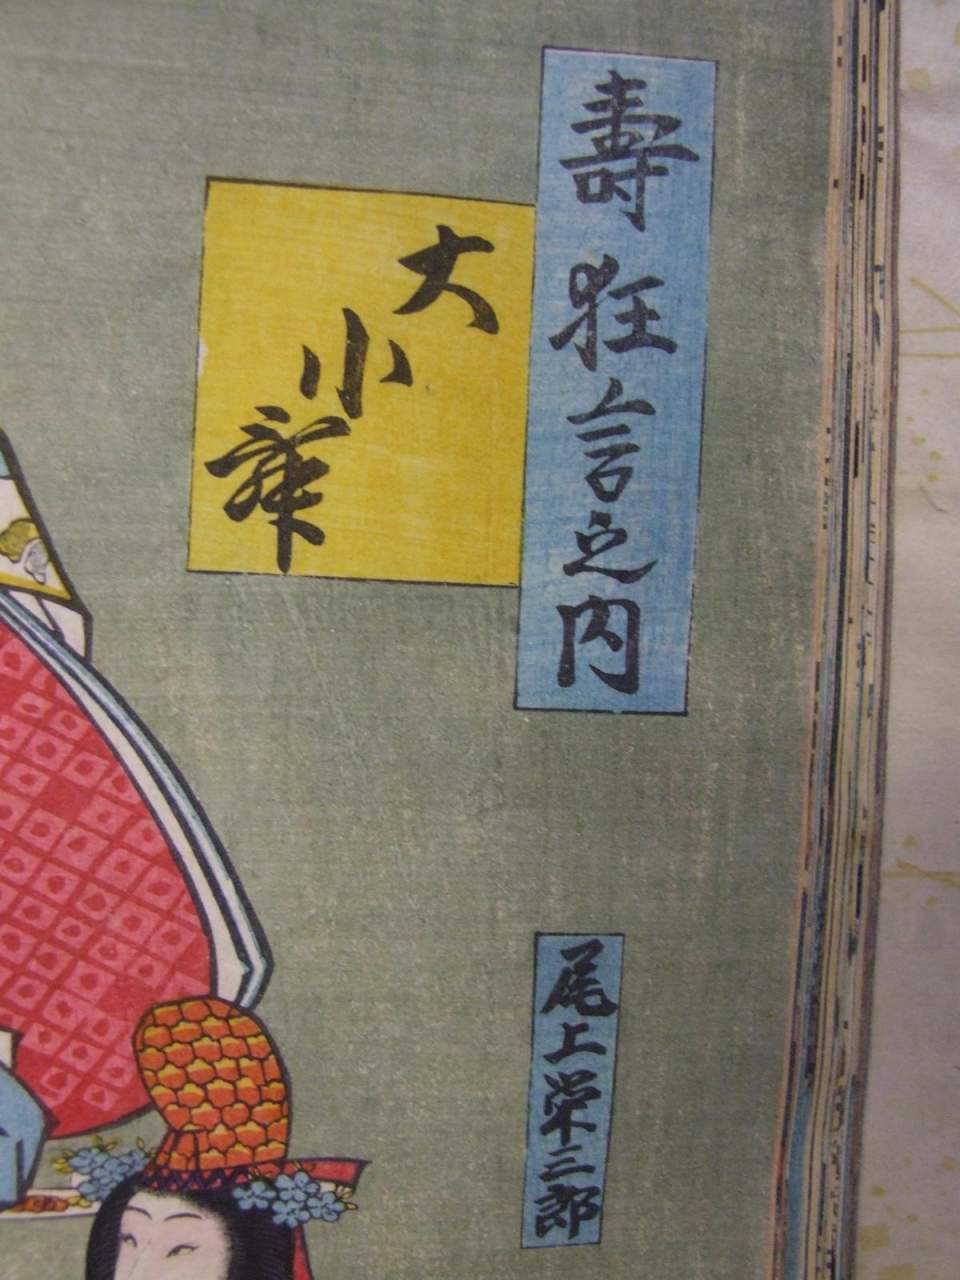 壽狂言之内
大小舞
尾上栄三郎